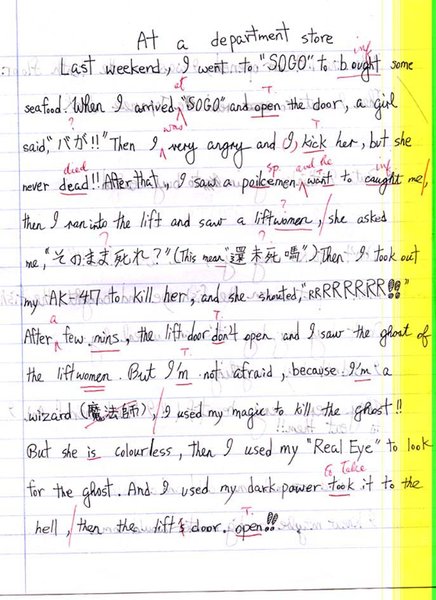 At a department store
Last weekend, I went to "SOGO" to bought some
inf
seafood. When I arrived "SOGO" and open the door, a girl
at
T.
said, "バが!!" Then I very angry and I, kick her, but she
?
was
T.
never dead!! After that, I saw a poilcemen want to caught me,
died
sp.
and he
inf
then I ran into the lift and saw a liftwomen, she asked
?
me, "そのまま死れ?" (This mean "還未死嗎") Then I took out
?
my AK-47 to kill her, and she shouted, "RRRRRRRR!!"
After few mins, the lift door don't open and I saw the ghost of
a
T.
the liftwomen. But I'm not afraid, because I'm a
T.
wizard (魔法師), I used my magic to kill the ghost!!
But she is colourless, then I used my "Real Eye" to look
for the ghost. And I used my dark power took it to the
to take
hell, then the lift's door. open!!
T.